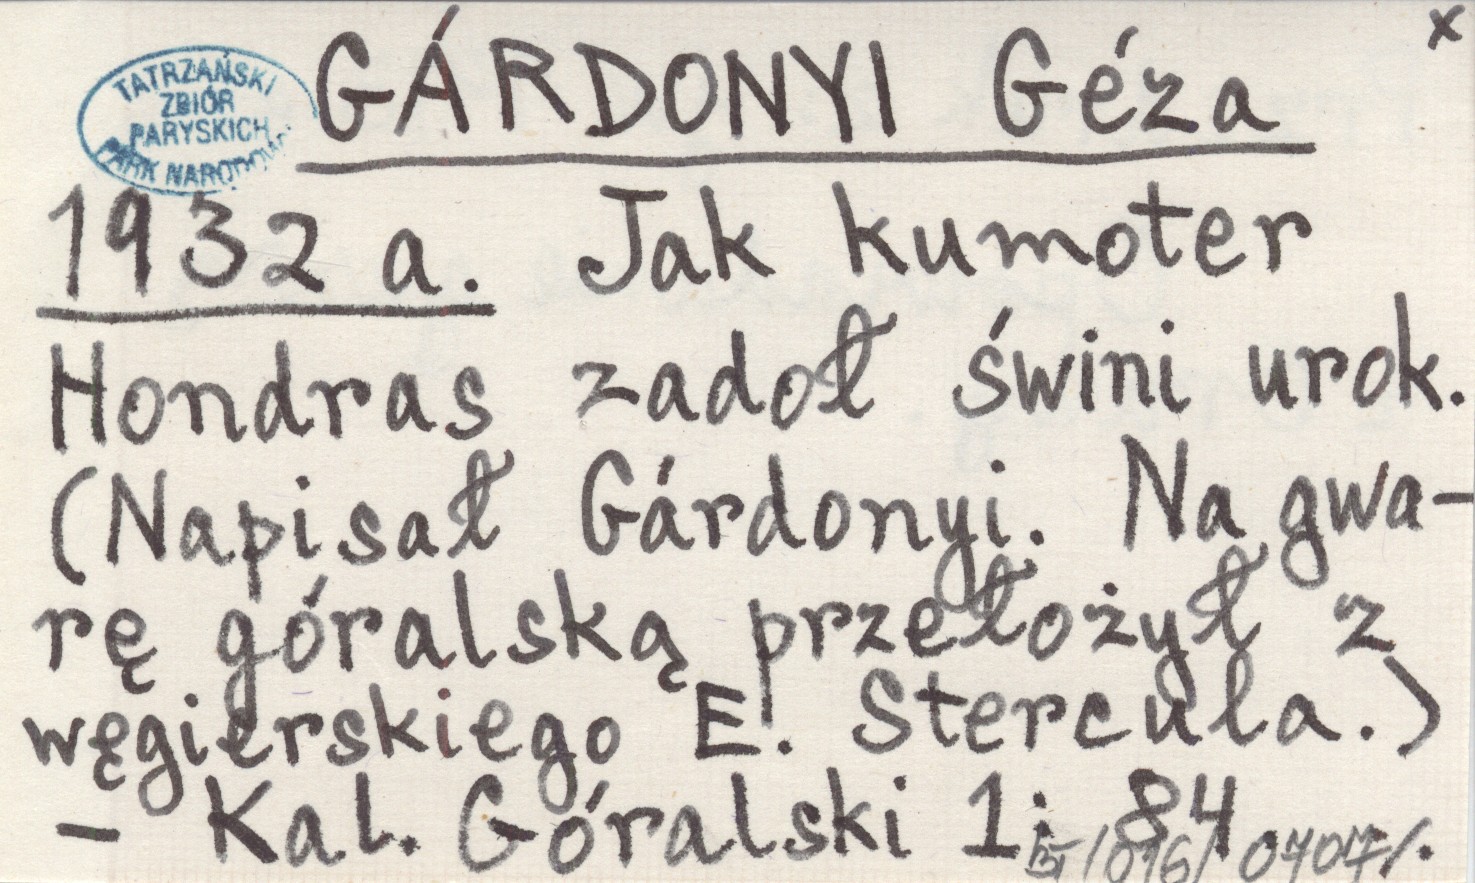 x
TATRZAŃSKI
ZBIÓR
PARYSKICH
PARK NARODOWY
GÁRDONYI Géza
1932 a. Jak kumoter
Hondras zadoł świni urok.
(Napisał Gárdonyi. Na gwa-
rę góralską przełożył z
węgierskiego E. Stercula.)
- Kal. Góralski 1: 84.
/016/0707/.